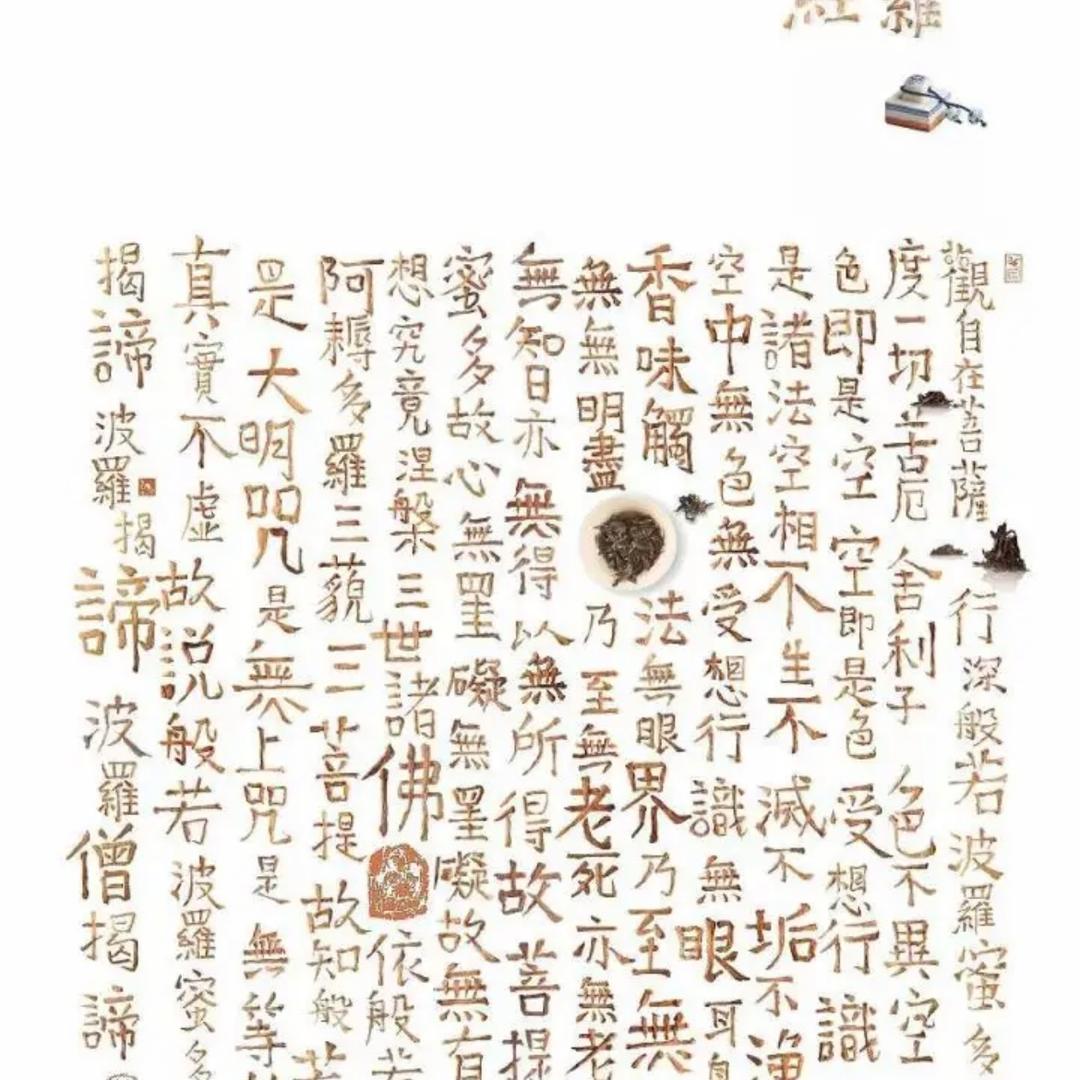 觀自在菩薩行深般若波羅蜜多
度一切苦厄舍利子色不異空
色即是空空即是色受想行識
是諸法空相不生不滅不垢不淨
空中無色無受想行識無眼耳
香味觸法無眼界乃至無
無無明盡乃至無老死亦無老
無知日亦無得以無所得故菩提
蜜多故心無罣礙無罣礙故無有
想究竟涅槃三世諸佛依般若
阿耨多羅三藐三菩提故知般若
是大明咒是無上咒是無等
真實不虛故說般若波羅蜜多
揭諦波羅揭諦波羅僧揭諦